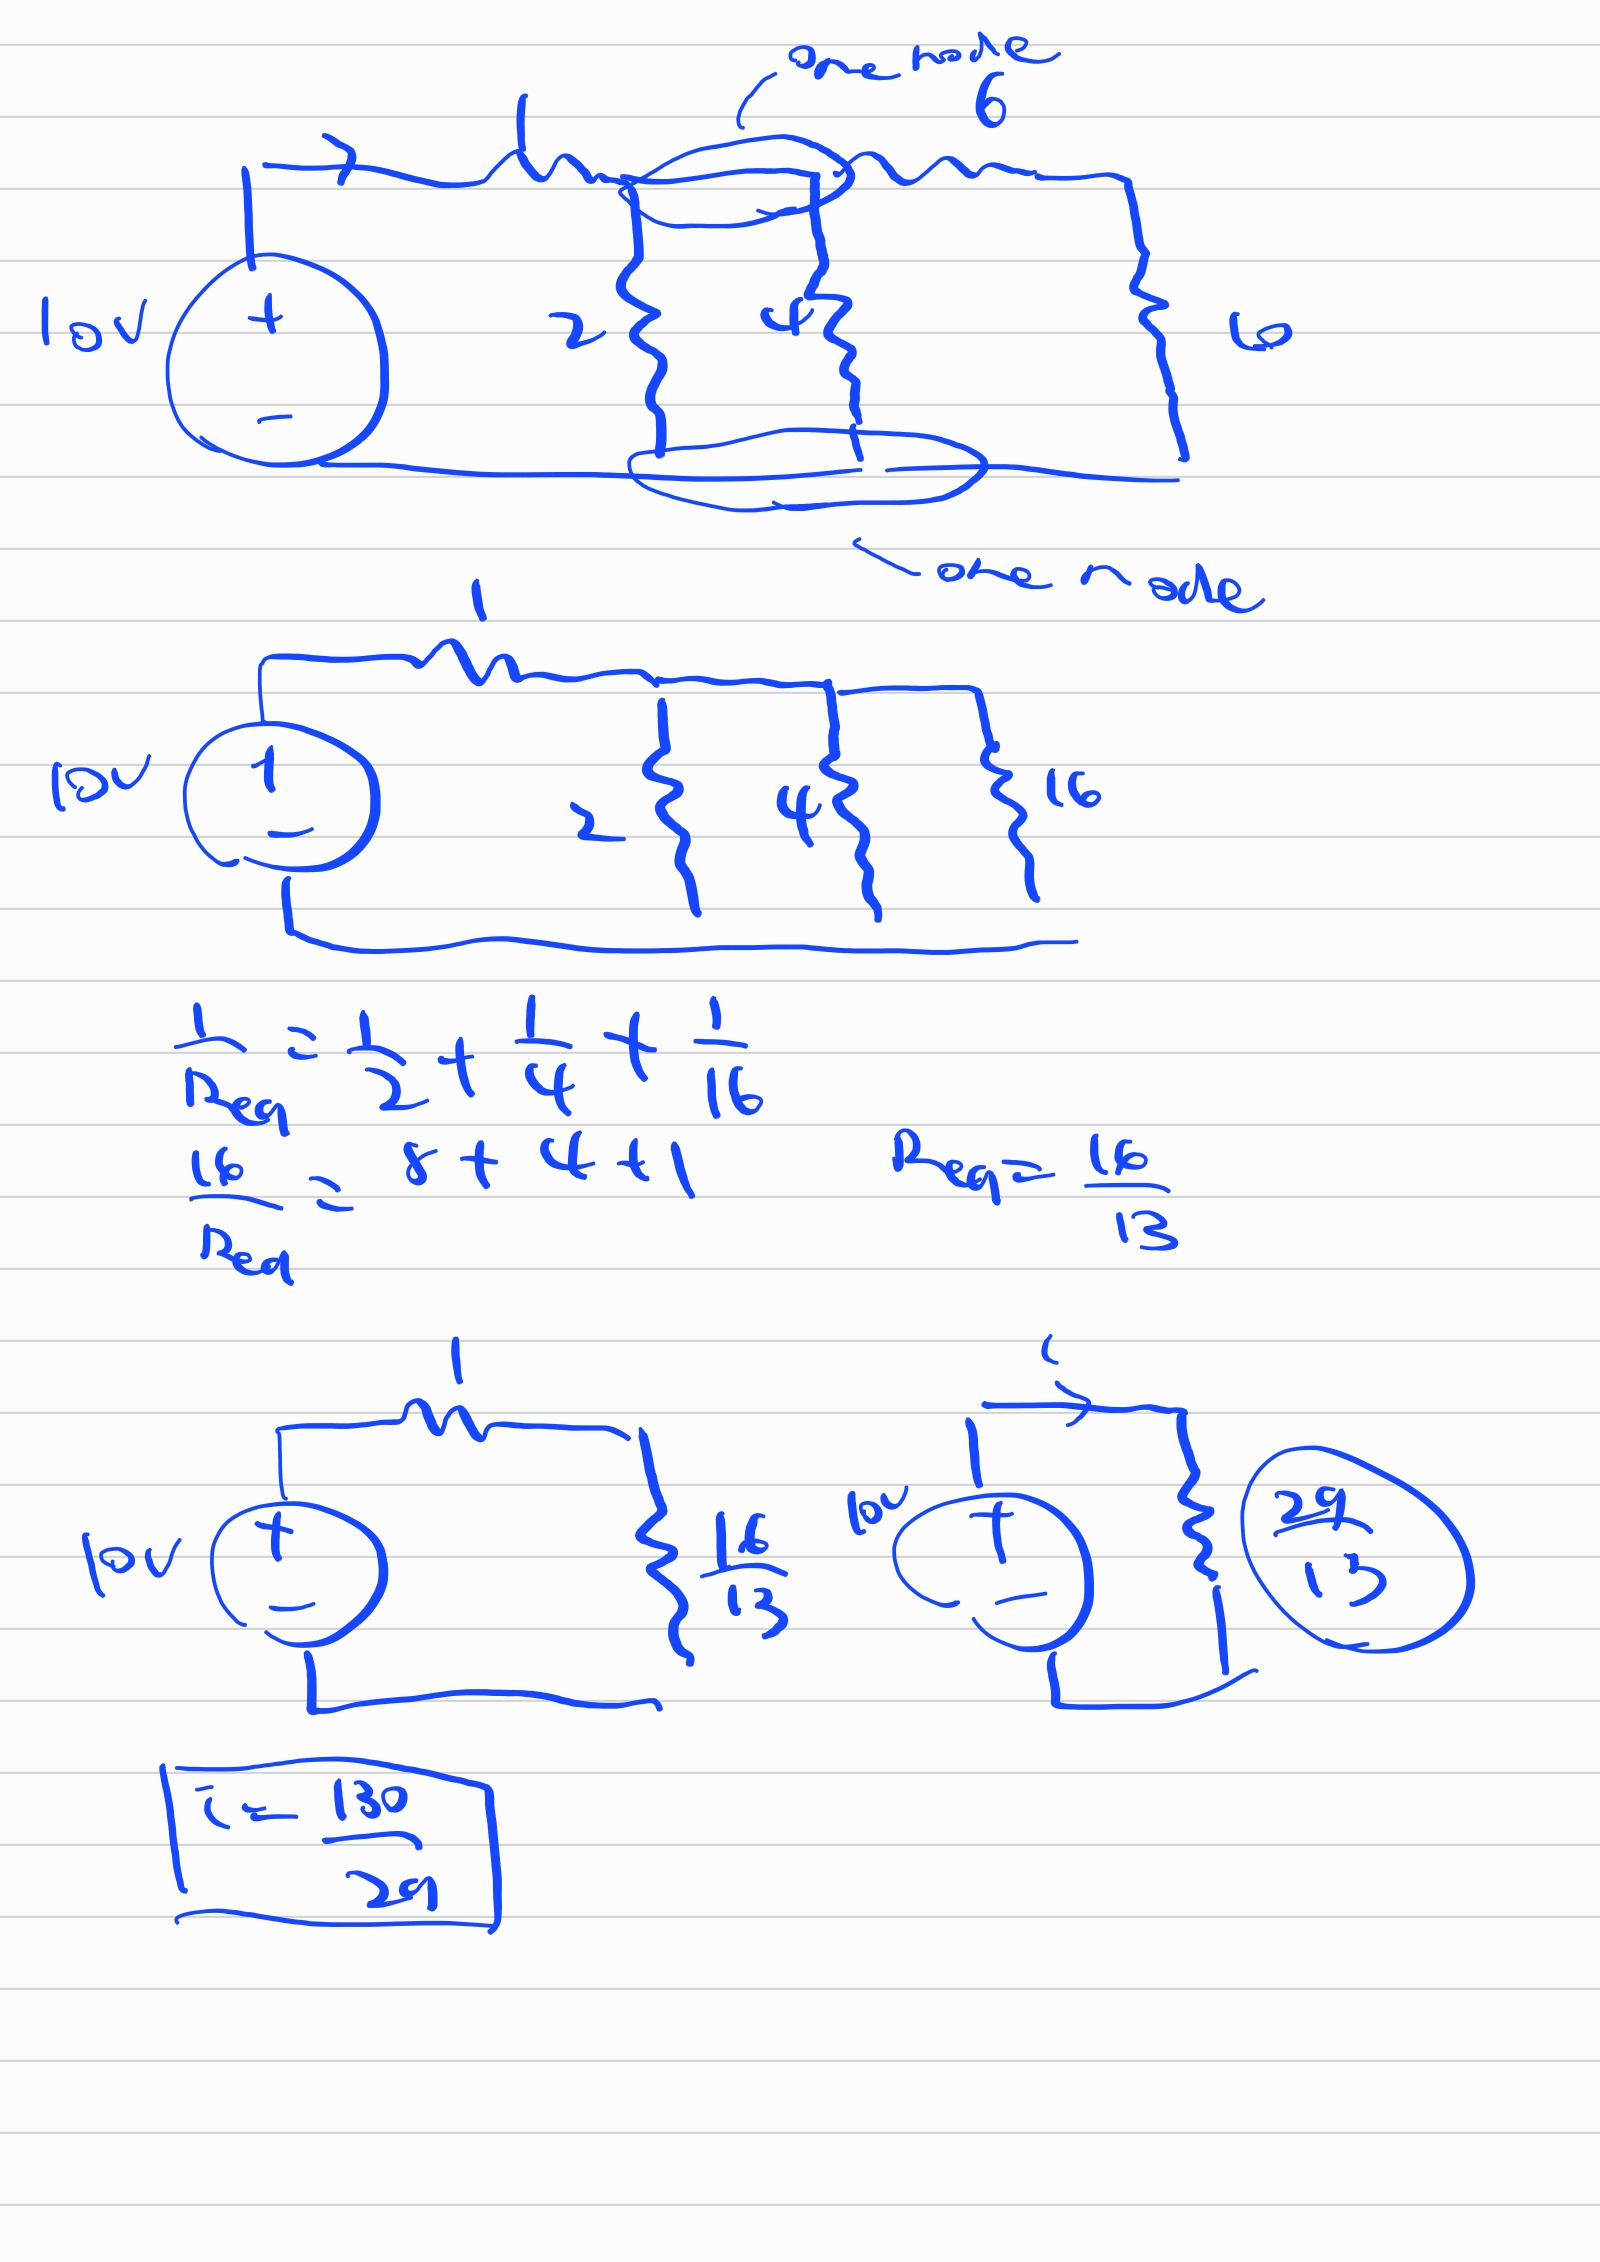 one node
6
1
10V
+
-
2
4
10
one node
1
10V
+
-
2
4
16
1/Req = 1/2 + 1/4 + 1/16
16/Req = 8 + 4 + 1
Req = 16/13
1
10V
+
-
16/13
i
10V
+
-
29/13
i = 130/29